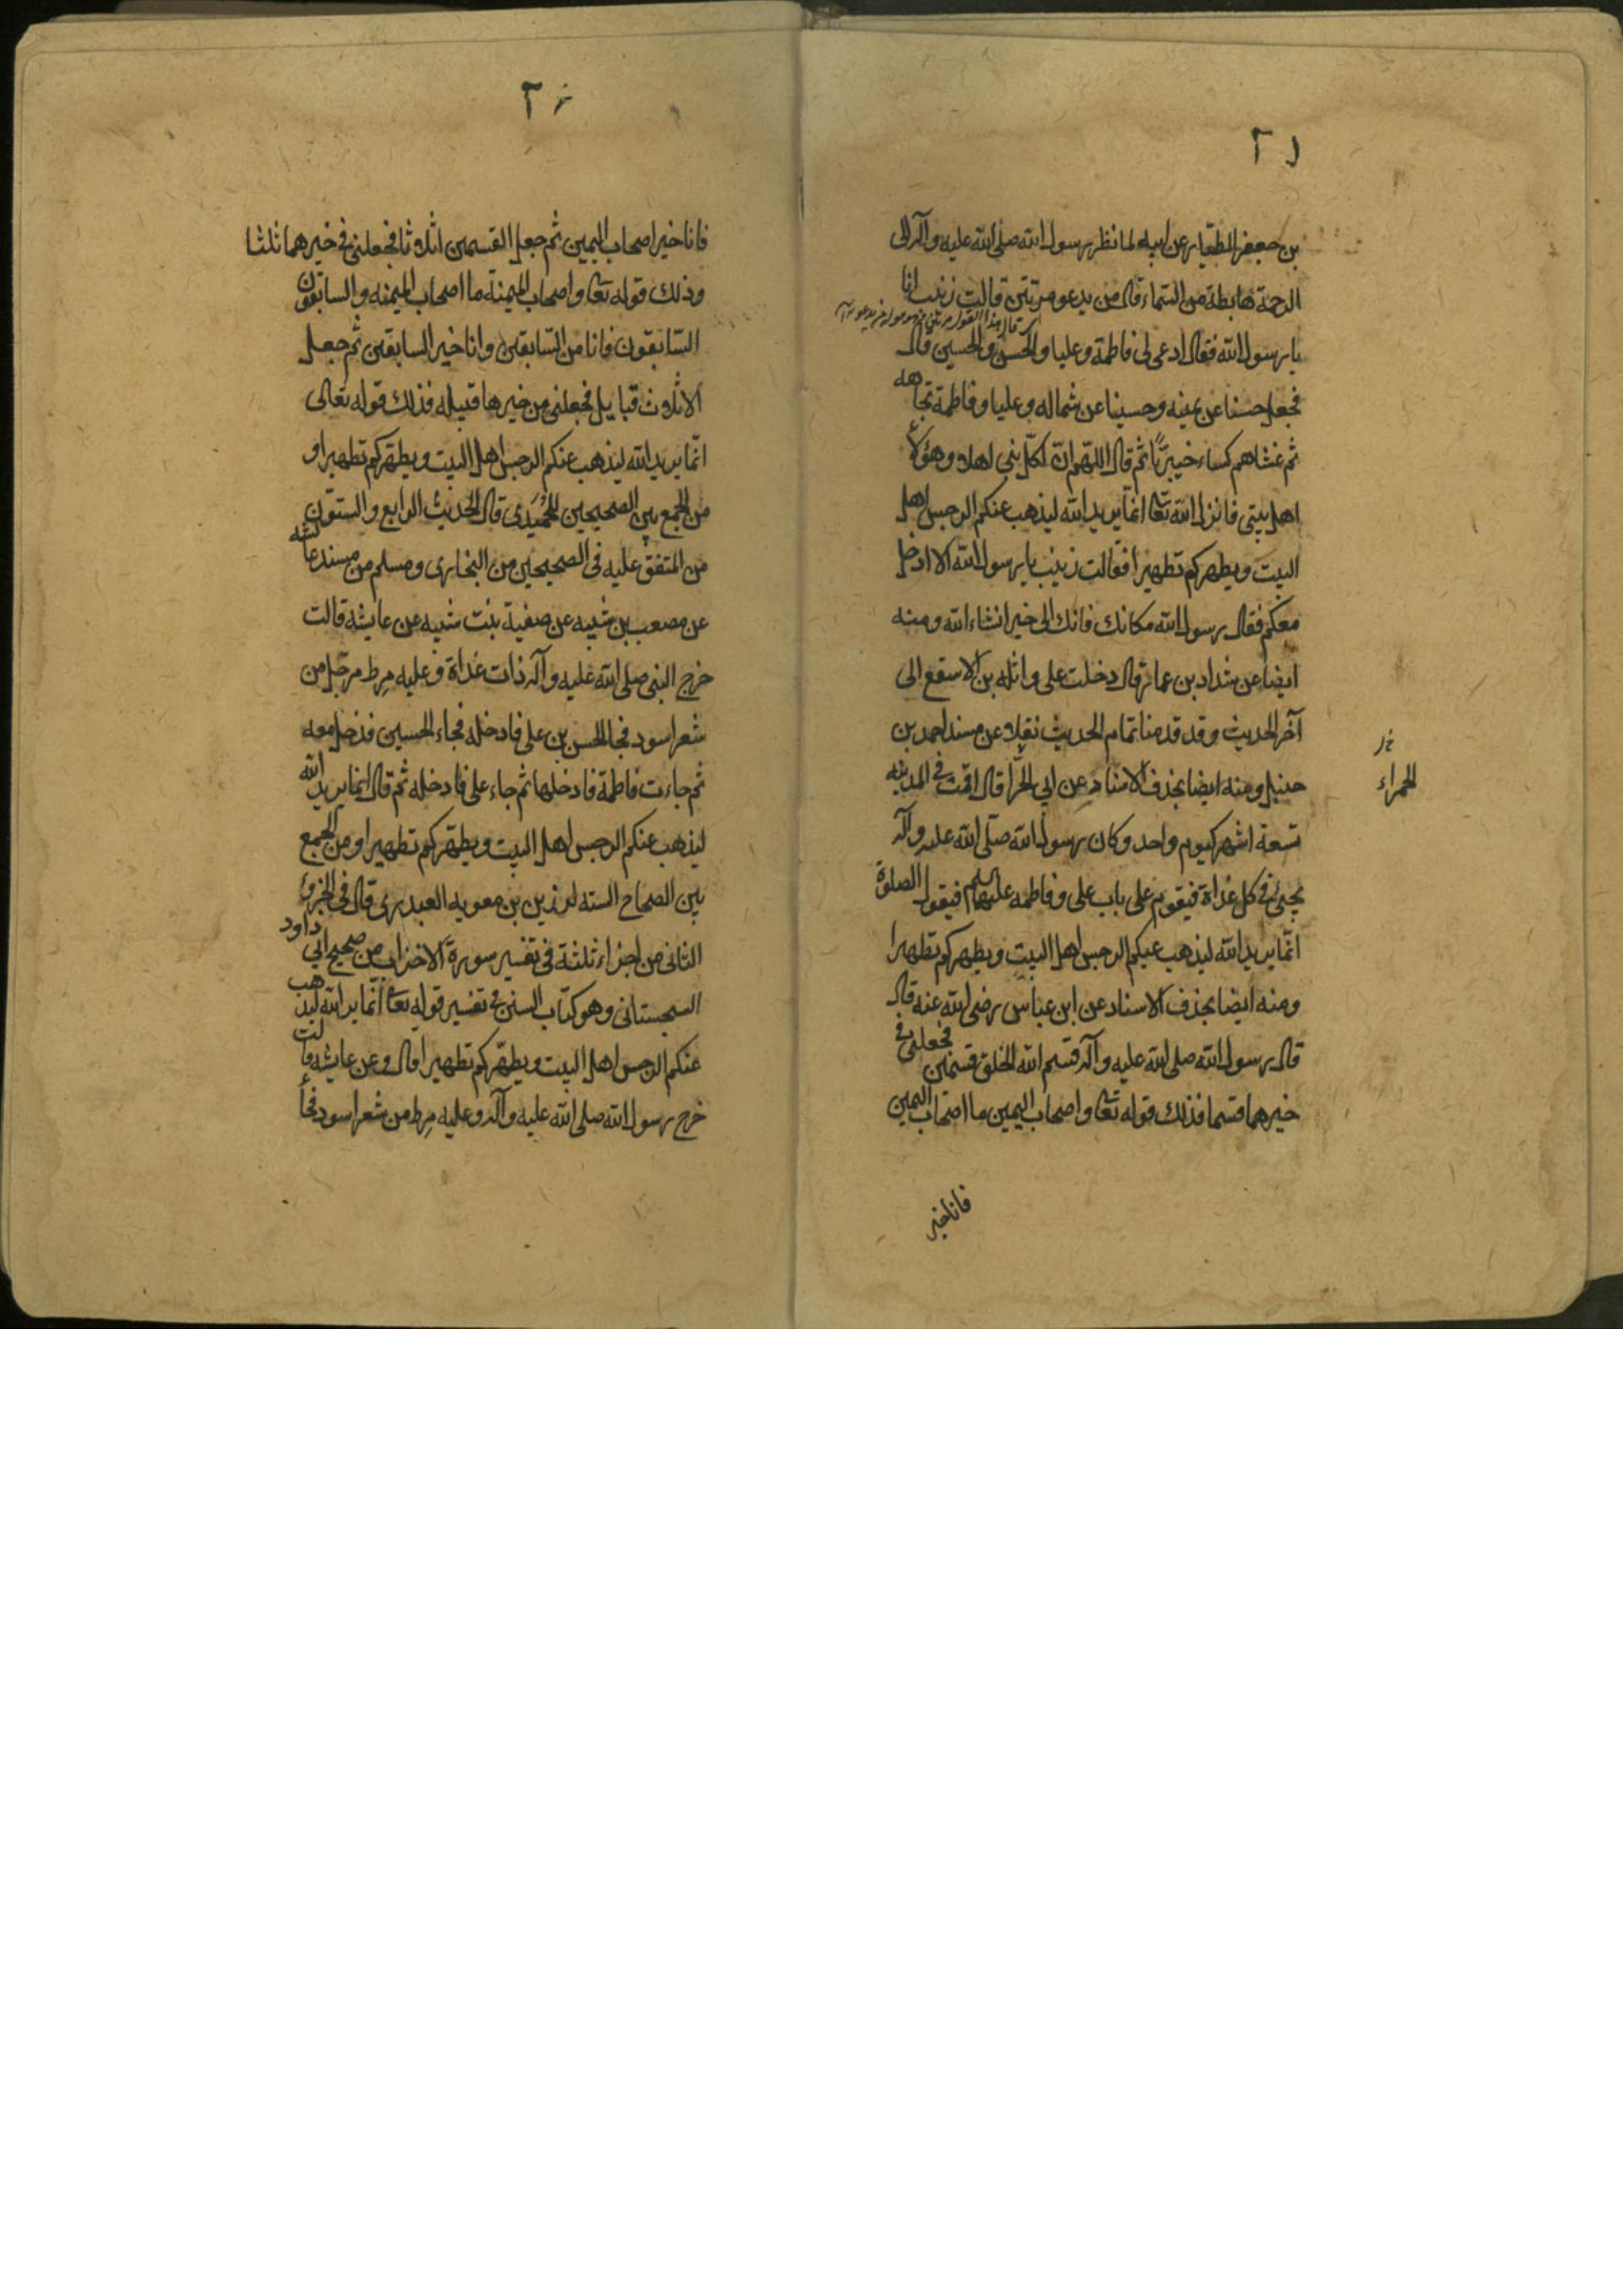 ٢١
بن جعفر الطيار عن ابيه لما نظر رسول الله صلى الله عليه وآله الى
الرحمة هابطة من السماء قال من يدعو مرتين قالت زينب انا
يا رسول الله فقال ادعى لى فاطمة وعليا والحسن والحسين قال
فجعل حسنا عن يمينه وحسينا عن شماله وعليا وفاطمة تجاهه
ثم غشاهم كساء خيبريا ثم قال اللهم ان لكل نبى اهلا وهؤلاء
اهل بيتى فانزل الله تعا انما يريد الله ليذهب عنكم الرجس اهل
البيت ويطهركم تطهيرا فقالت زينب يا رسول الله الا ادخل
معكم فقال رسول الله مكانك فانك الى خير انشاء الله ومنه
ايضا عن شداد بن عمار قال دخلت على واثلة بن الاسقع الى
آخر الحديث وقد قدمنا تمام الحديث نقلا عن مسند احمد بن
حنبل ومنه ايضا بحذف الاسناد عن ابى الحرا قال اقمت فى المدينه
الحمراء
تسعة اشهر كيوم واحد وكان رسول الله صلى الله عليه وآله
يجئ فى كل غداة فيقوم على باب على وفاطمه عليهما السلم فيقول الصلوة
انما يريد الله ليذهب عنكم الرجس اهل البيت ويطهركم تطهيرا
ومنه ايضا بحذف الاسناد عن ابن عباس رضى الله عنه قال
قال رسول الله صلى الله عليه وآله قسم الله الخلق قسمين فجعلنى فى
خيرهما قسما فذلك قوله تعا واصحاب اليمين ما اصحاب اليمين
فانا خير
٢٢
فانا خير اصحاب اليمين ثم جعل القسمين اثلاثا فجعلنى فى خيرهما ثلثا
وذلك قوله تعا واصحاب الميمنة ما اصحاب الميمنه والسابقون
السابقون فانا من السابقين وانا خير السابقين ثم جعل
الاثلاث قبايل فجعلنى من خيرها قبيله فذلك قوله تعالى
انما يريد الله ليذهب عنكم الرجس اهل البيت ويطهركم تطهيرا و
من الجمع بين الصحيحين للحميدى قال الحديث الرابع والستون
من المتفق عليه فى الصحيحين من البخارى ومسلم من مسند عائشه
عن مصعب بن شيبه عن صفية بنت شيبه عن عايشه قالت
خرج النبى صلى الله عليه وآله ذات غداة وعليه مرط مرجل من
شعر اسود فجا الحسن بن على فادخله فجاء الحسين فدخل معه
ثم جاءت فاطمة فادخلها ثم جاء على فادخله ثم قال انما يريد الله
ليذهب عنكم الرجس اهل البيت ويطهركم تطهيرا ومن الجمع
بين الصحاح السته لرزين بن معويه العبدرى قال فى الجزؤ
الثانى من اجزاء ثلثة فى تفسير سورة الاحزاب من صحيح ابى داود
السجستانى وهو كتاب السنن فى تفسير قوله تعا انما يريد الله ليذهب
عنكم الرجس اهل البيت ويطهركم تطهيرا قال وعن عايشه قالت
خرج رسول الله صلى الله عليه وآله وعليه مرط من شعر اسود فجأ